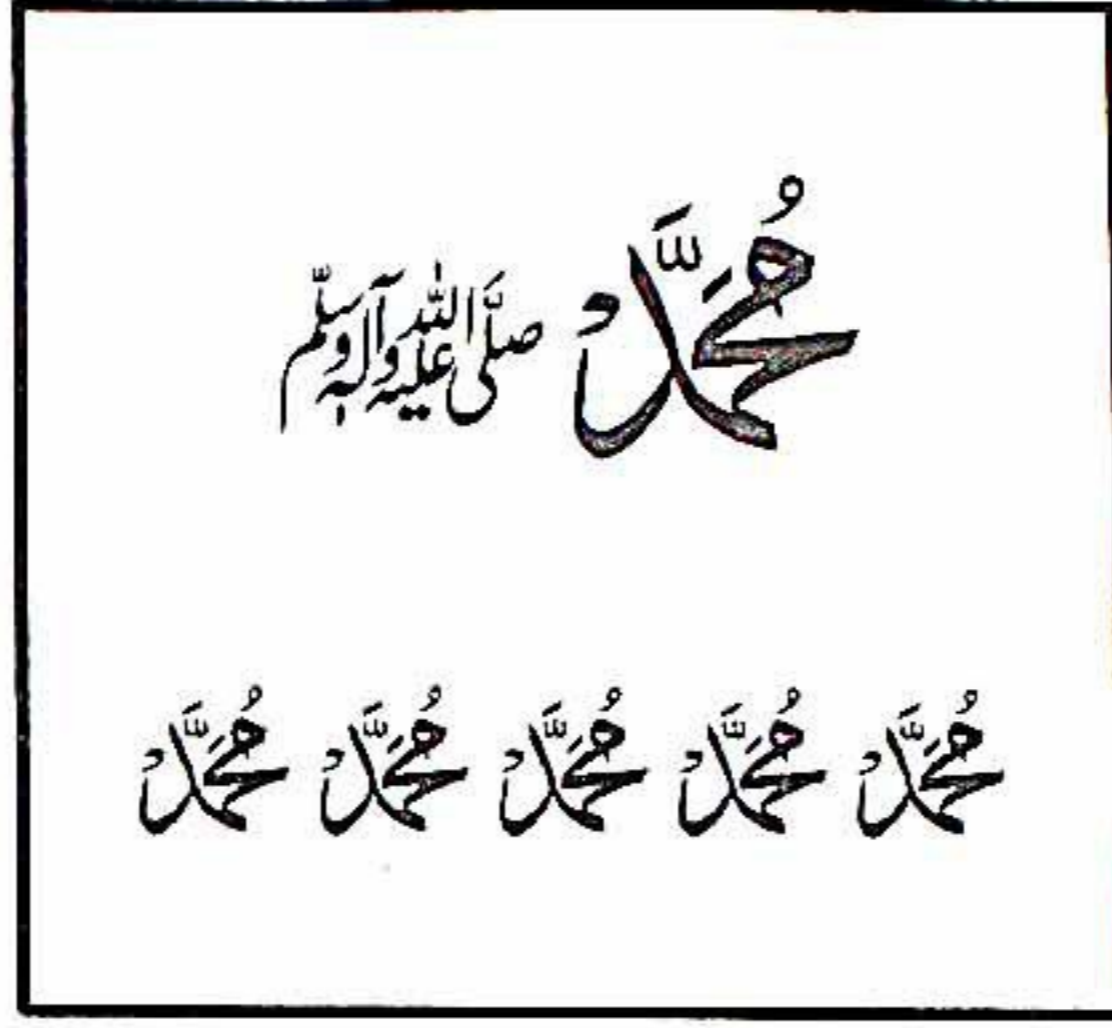 مُحَمَّدْ صلَّی اللہ علیہ وآلہٖ وسلّم
مُحَمَّدْ مُحَمَّدْ مُحَمَّدْ مُحَمَّدْ مُحَمَّدْ